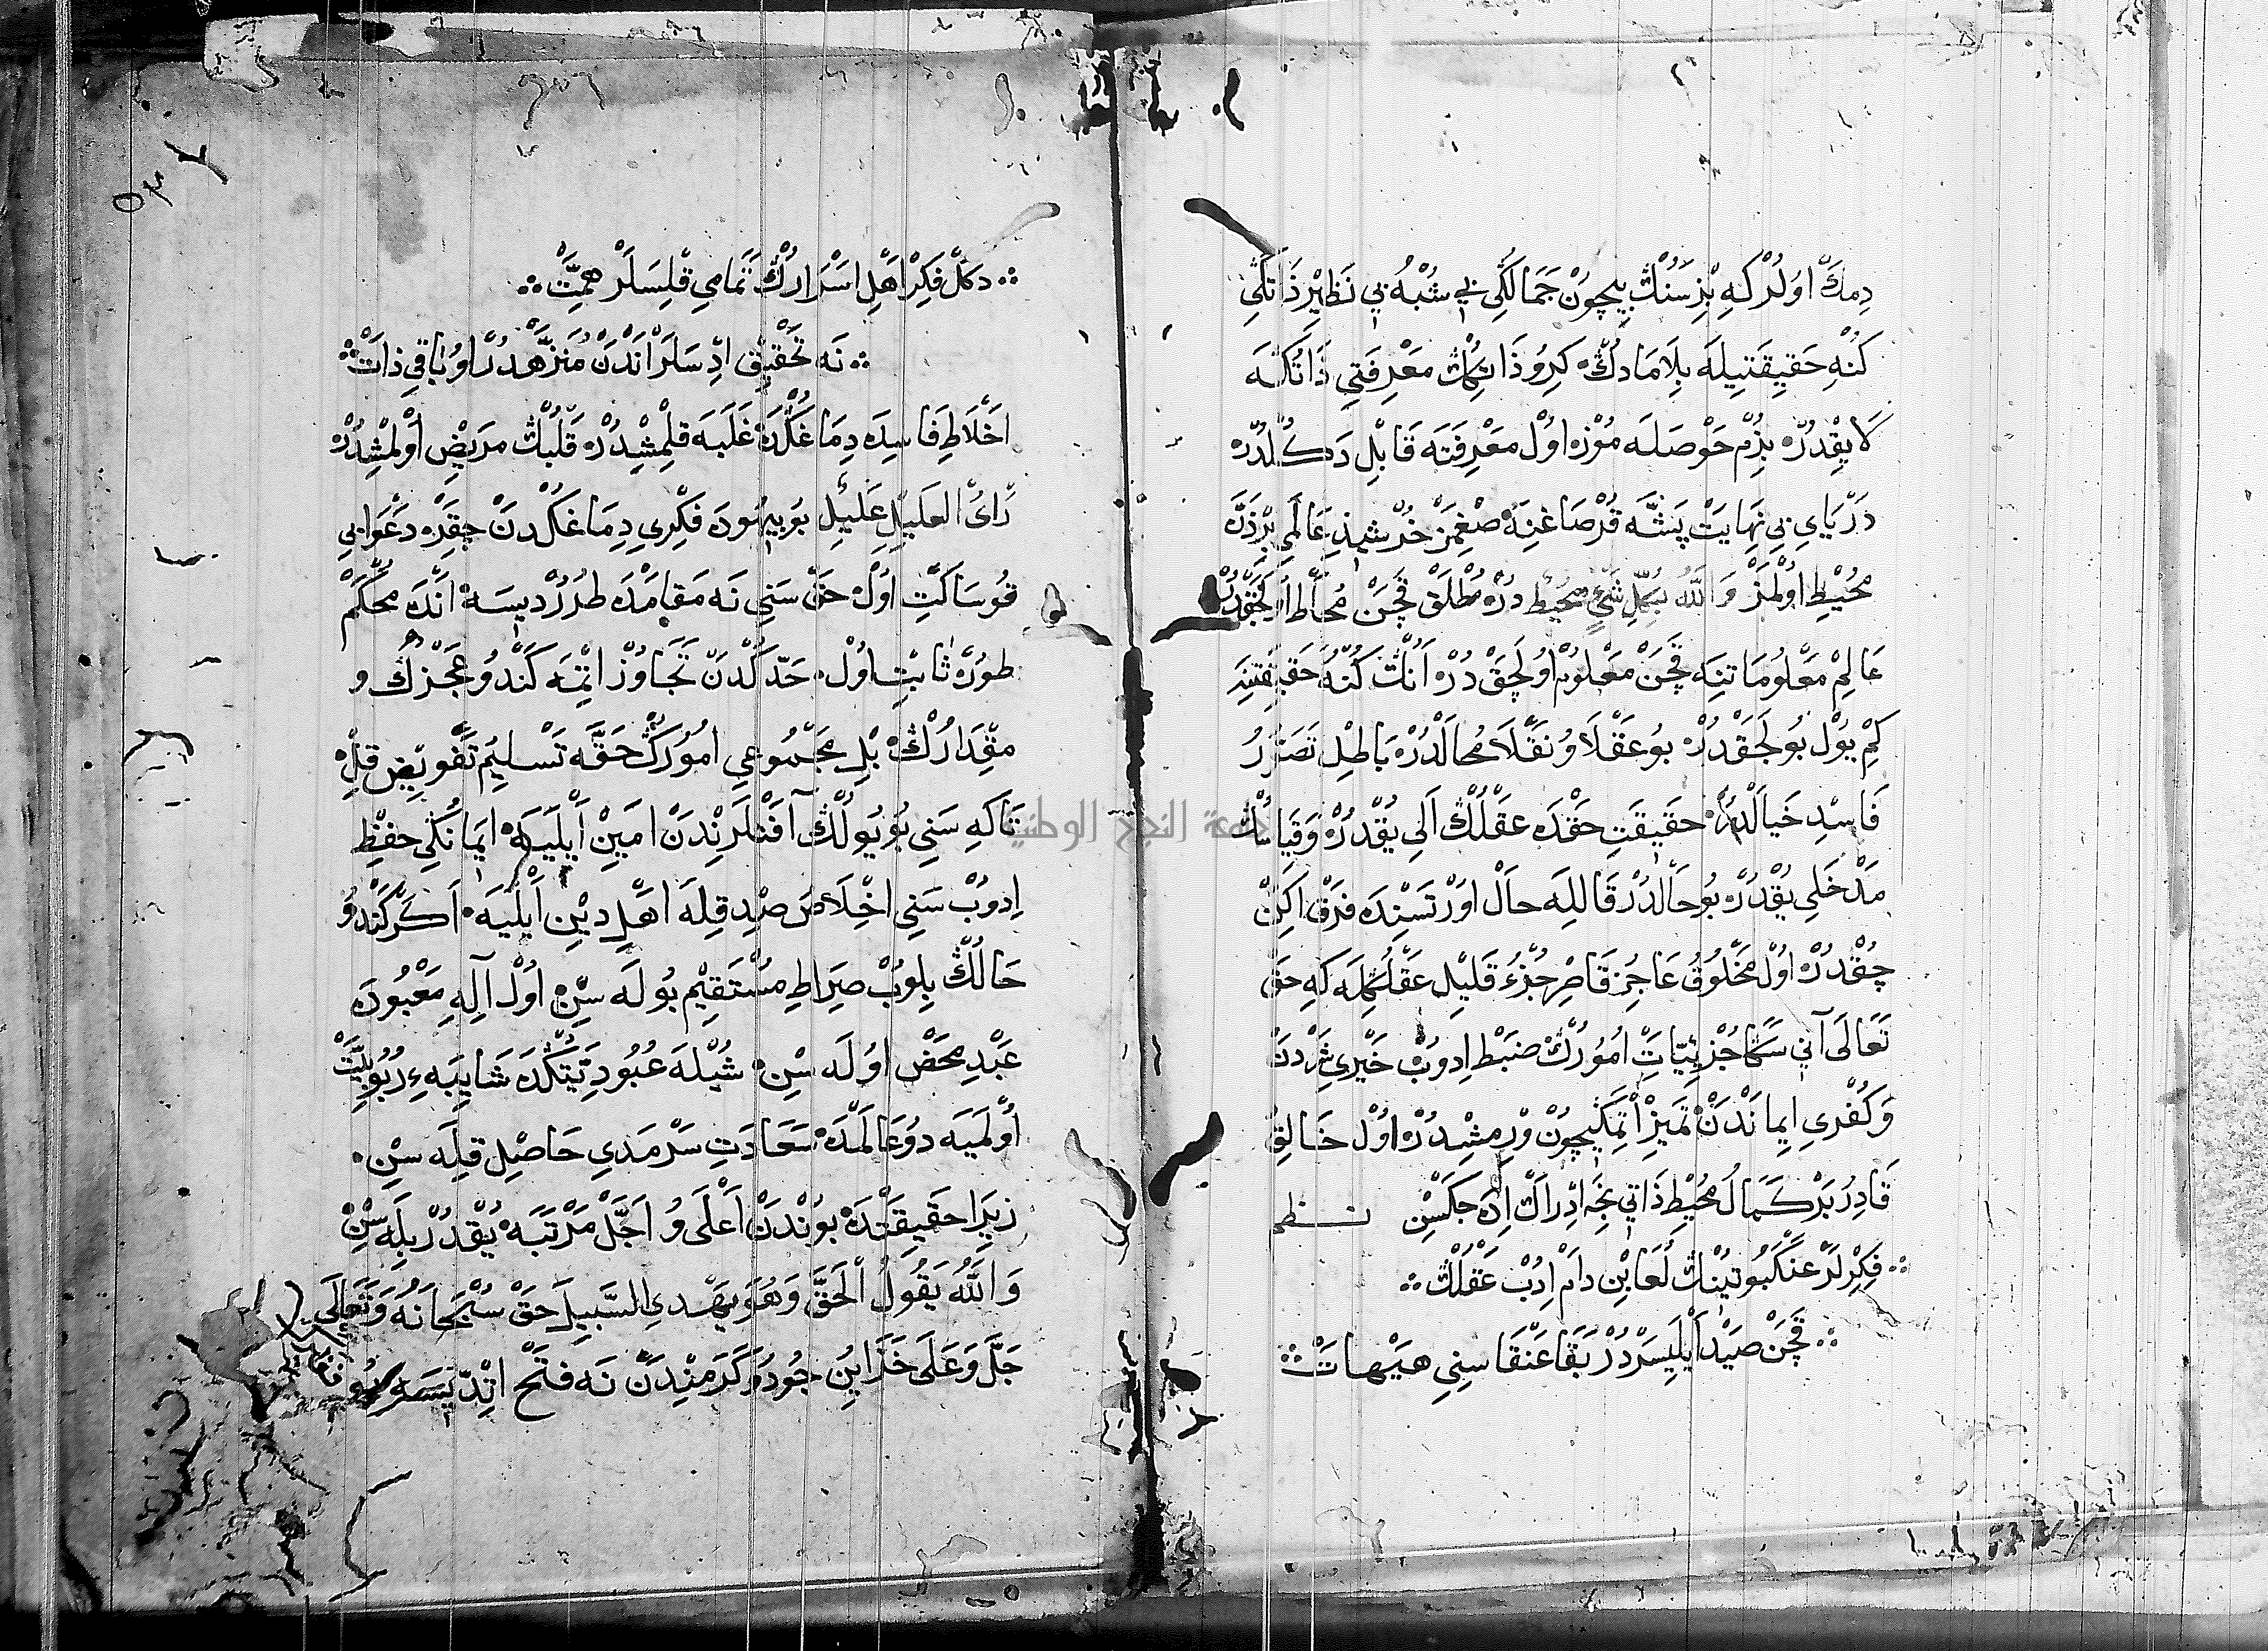 دِمَكْ اوُلُرْ كِه بِزْ سَنُكْ بِيچُونْ جَمَالُكِى بِى شُبْهُ بِى نَظِيرْ ذَاتُكِى
كُنْهِ حَقيِقَتيِلَه بِلَامَادُكْ كِرُو ذَاتُكُكْ مَعْرِفَتِى ذَاتُكَه
لَايِقْدُرْ بِزُمْ حَوْصَلَه مُوزْ اوُلْ مَعْرِفَتَه قَابِلْ دَكُلْدُرْ
دَرْيَاىِ بِى نِهَايَتْ پَشَّه قُرْصَاغِنَه صِغْمَزْ خُرْشيِذِ عَالَمِى بِرْ ذَرَّه
مُحيِطْ اوُلْمَزْ وَاللّٰهُ بِكُلِّ شَيْءٍ مُحيِطْ دُرْ مُطْلَقْ قَچَنْ مُحَاطْ اوُلَجَقْدُرْ
عَالِمْ مَعْلُومَاتِنَه قَچَنْ مَعْلُومْ اوُلَجَقْ دُرْ انُكْ كُنْهُ حَقيِقَتِنَه
كِمْ يُولْ بُولَجَقْدُرْ بُو عَقْلًا وُ نَقْلًا مُحَالْدُرْ بَاطِلْ تَصَوُّرُ
فَاسِدْ خَيَالْدُرْ حَقيِقَتِ حَقْدَه عَقْلُكْ اَلِى يُقْدُرْ وَقيَاسُكْ
مَدْخَلِى يُقْدُرْ بُو حَالْدُرْ قَالِلَه حَالْ اوُرْتَسِنْدَه فَرْقْ اكَنْ
چُقْدُرْ اوُلْ مَخْلُوقُ عَاجِزْ قَاصِرْ جُزْءُ قَليِلْ عَقْلُكْلَه كَه حَقْ
تَعَالَى آنِى سَكَا جُزْئِيَّاتِ امُورُكْ ضَبْطْ اِدوُبْ خَيْرِى شَرْدَنْ
وَكُفْرِى ايِمَانْدَنْ تَميِزْ اتْمَكيِچُونْ وِرْمِشْدُرْ اوُلْ خَالِقُ
قَادِرُ بَرْكَمَالْ مُحيِطْ ذَاتِى نِجَه ادْرَاكْ اِدَه جَكْسِنْ نظم
فِكِرْلَرْ عَنْكَبُوتيِنُكْ لُعَابِنْ دَامْ اِدُبْ عَقْلُكْ
قَچَنْ صَيْدْ اَيْلِيسَرْدُرْ بَقَا عَنْقَاسِنِى هَيْهَاتْ
دكُلْ فِكِرْ اهْلِ اسْرَارُكْ تَمَامِى قِلِسَلَرْ هِمَّتْ
نَه تَحْقيِقْ ادِسَلَرْ انْدَنْ مُنَزَّهْدُرْ اوُ بَاقِى ذَاتْ
اخْلَاطِ فَاسِدَه دِمَاغُكْدَه غَلَبَه قِلْمِشْدُرْ قَلْبُكْ مَريِضْ اوُلْمِشْدُرْ
رَاىُ العَليِلِ عَليِلْ بُو بيِهُودَه فِكْرِى دِمَاغُكْدَنْ چِقَرْ دَعْوَا بِى
قُو سَاكِتْ اوُلْ حَقْ سَنِى نَه مَقَامْدَه طُرُرْ ديِسَه انْدَه مُحْكَمْ
طوُرْ ثَابِتْ اوُلْ حَدِّكْدَنْ تَجَاوُزْ اتْمَه كَنْدُو عَجْزِكْ و
مِقْدَارُكْ بِلْ مَجْمُوعِى امُورِكْ حَقَّه تَسْليِمُ تَفْويِضْ قِلْ
تَاكَه سَنِى بُو يُولُكْ آفَتْلَرِنْدَنْ امَيِنْ اَيْلَيَه ايِمَانُكِى حِفْظْ
اِدوُبْ سَنِى اخْلَاصْدَه قِلَه اهْلِ ديِنْ اَيْلَيَه اَكَرْ كَنْدُو
حَالُكْ بِلوُبْ صِرَاطِ مُسْتَقِيمْ بُولَه سِنْ اوُلْ آلِهِ مَعْبُودَه
عَبْدِ مَحْضْ اوُلَه سِنْ شُيْلَه عُبُودِيَّتُكْدَه شَايِبَهءِ رُبُوبِيَّتْ
اوُلْمَيَه دُو عَالَمْدَه سَعَادَتِ سَرْمَدِى حَاصِلْ قِلَه سِنْ
زيِرَا حَقيِقَتْدَه بوُنْدَنْ اَعْلَى وُ اَجَلْ مَرْتَبَه يُقْدُرْ بِلَه سِنْ
وَاللّٰهُ يَقُولُ الْحَقَّ وَهُوَ يَهْدِى السَّبيِلَ حَقْ سُبْحَانَهُ وَتَعَالَى
جَلَّ وَعَلَى خَزَايِنُ جُودُ وَ كَرَمِنْدَنْ نَه فَتْحْ اتْدِيسَه
جامعة النجاح الوطنية